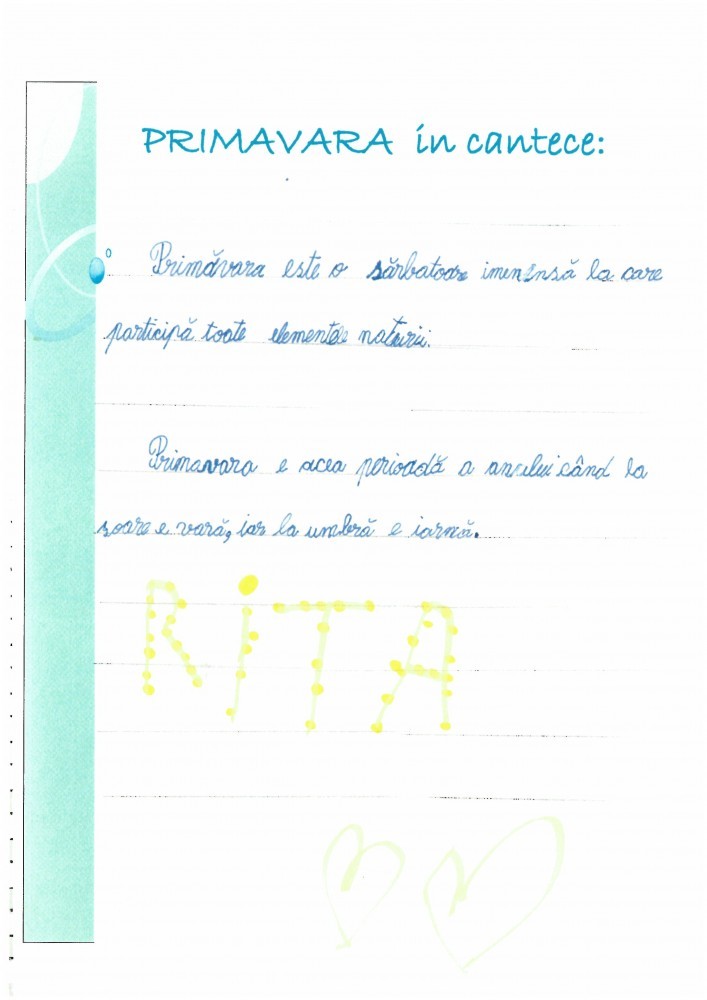 PRIMAVARA in cantece:
Primăvara este o sărbatoare imensă la care
participă toate elementele naturii.
Primavara e acea perioadă a anului când la
soare e vară, iar la umbră e iarnă.
RiTA